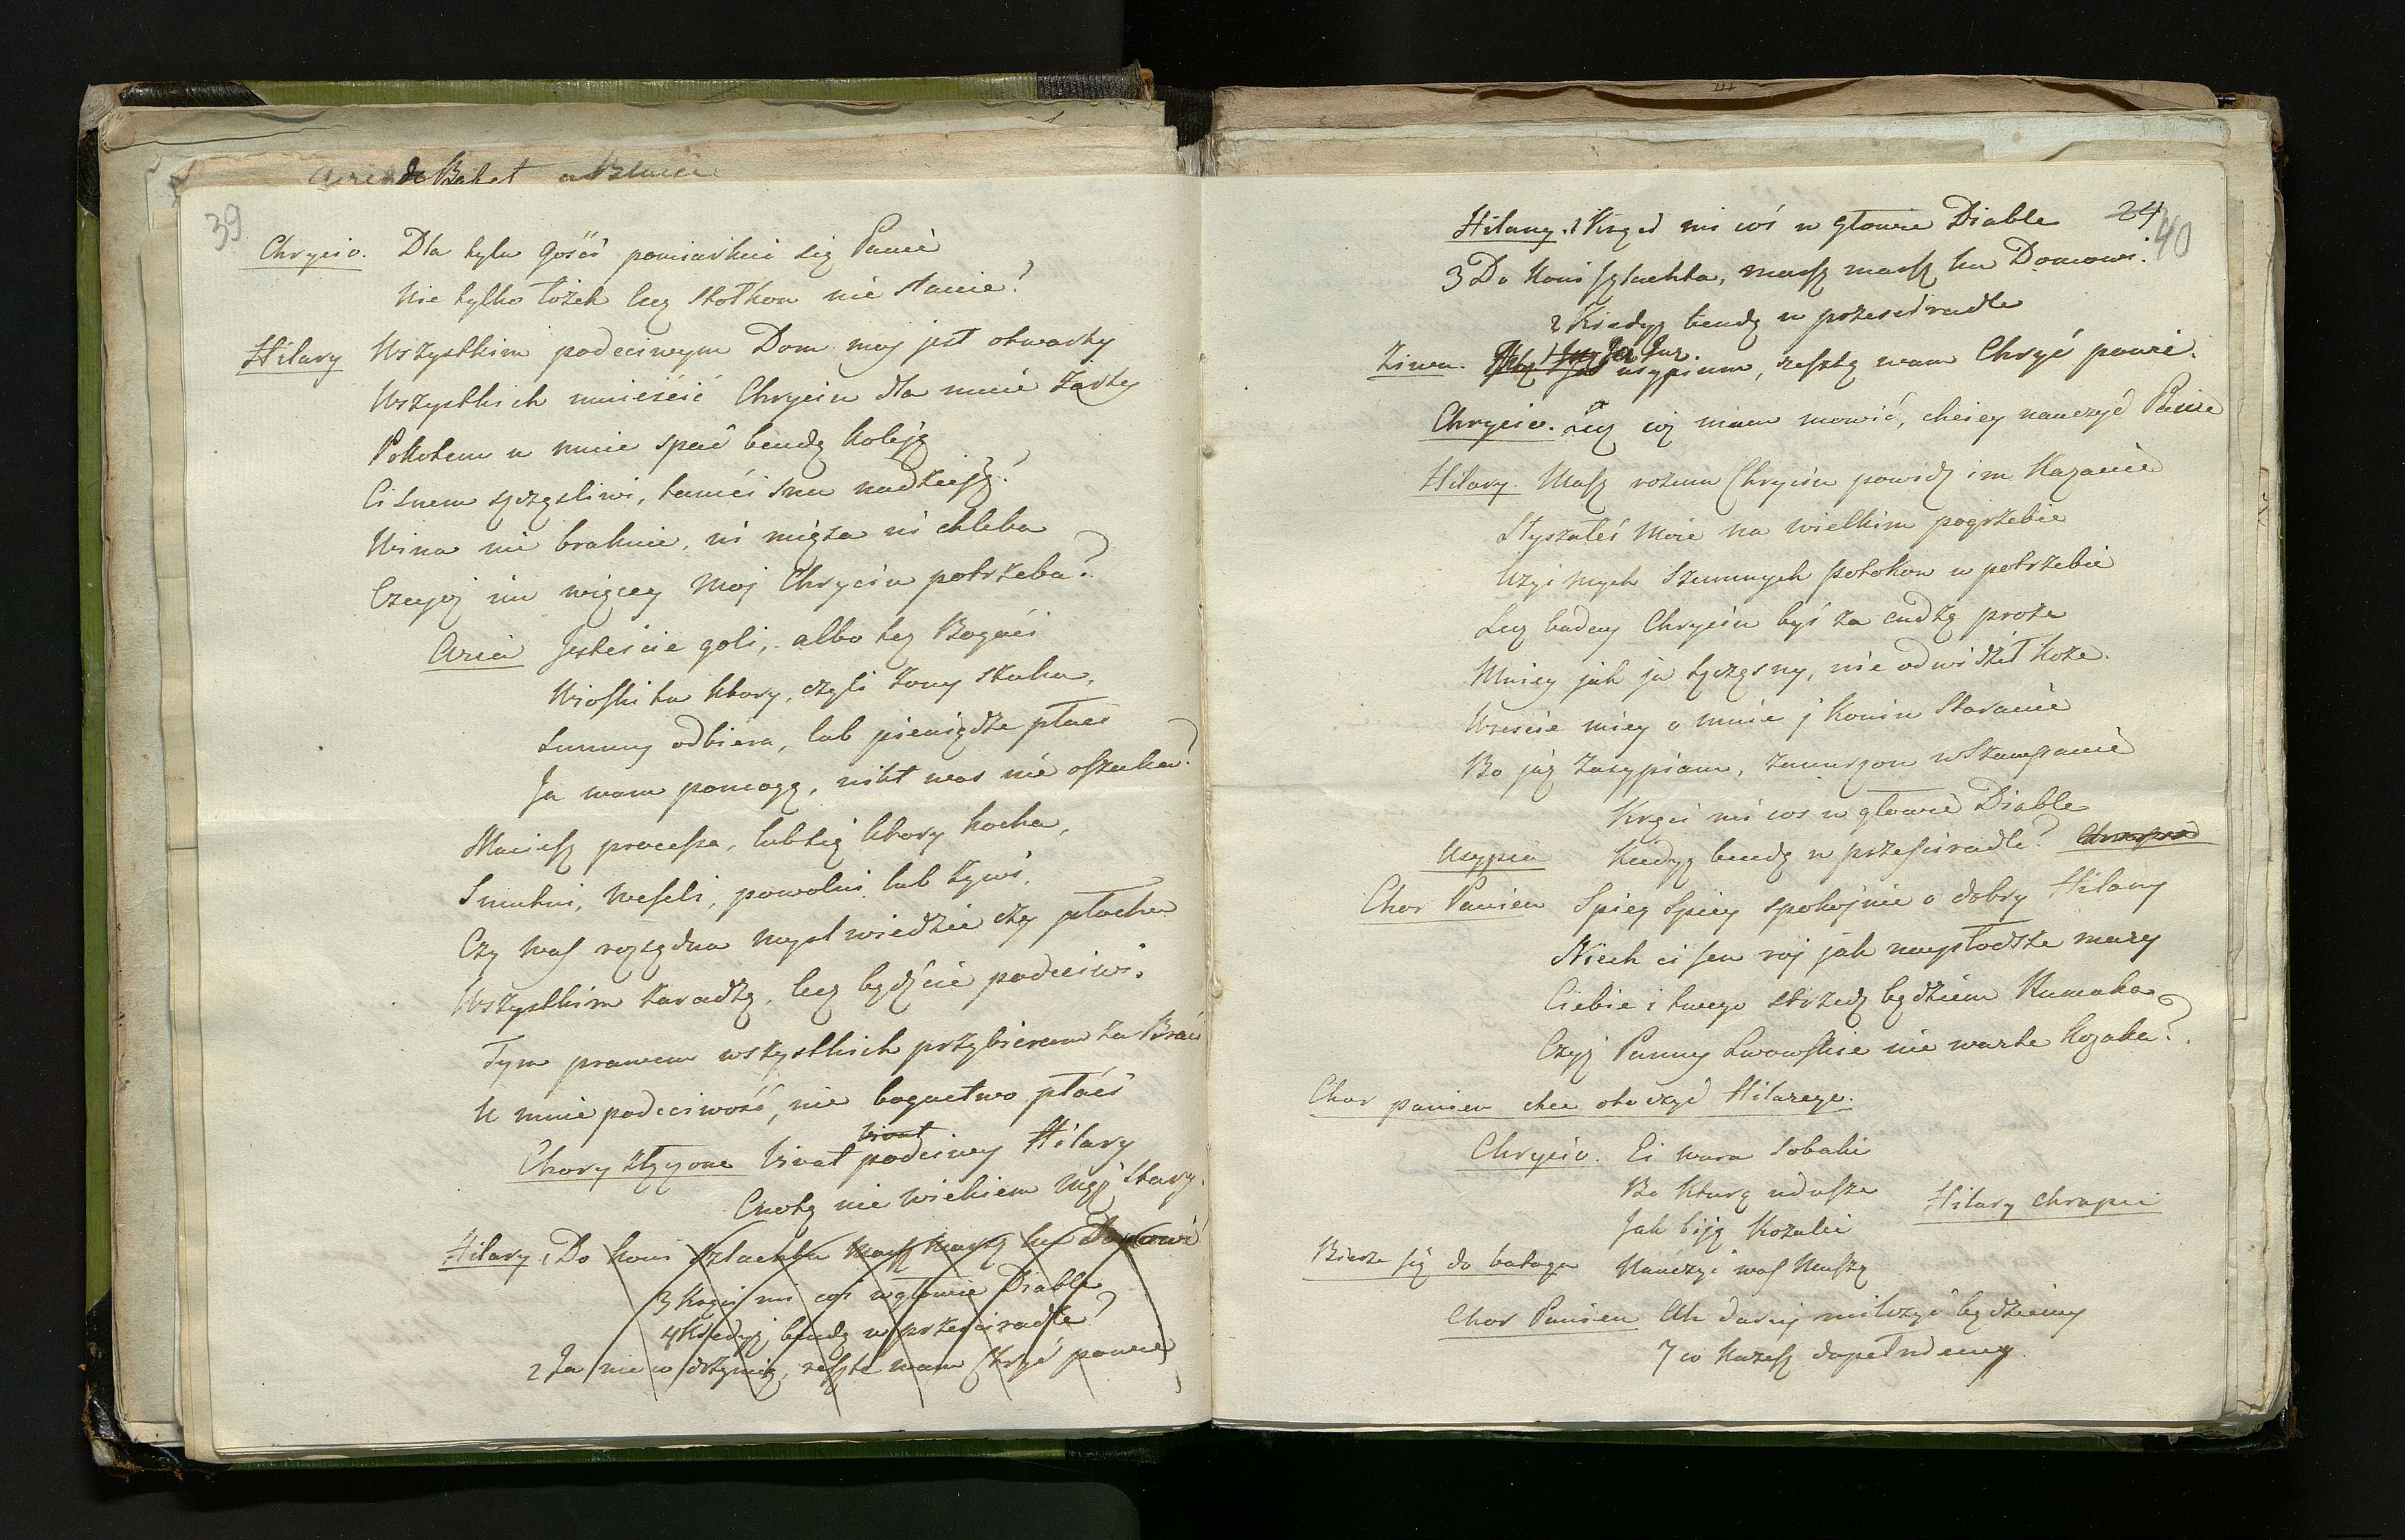 39
Chrycio. Dla tylu gości pomiarkui się Panie
Nie tylko łożek lecz stołkow nie stanie?
Hilary Wszystkim podeciwym Dom moj jest otwarty
Wszystkich mieścić Chryciu dla mnie żarty
Pokotem u mnie spać bendą koleją
Ci snem szczęsliwi, tamci snu nadzieją?
Wina nie braknie, ni mięsa ni chleba
Czegoj im więcey moj Chryciu potrzeba?
Aria Jesteście goli, albo tez Bogaci
Wioski tu ktory, czyli zony szuka,
Summy odbiera, lub pieniądze płaci
Ja wam pomogę, nikt was nie oszuka?
Maciesz processa, lub się ktory kocha,
Smutni, weseli, powolni lub żywi,
Czy was rozsądna mysl wiedzie czy płocha
Wszystkim zaradzę, lecz bądzcie podeciwi.
Tym prawem wszystkich przybieram za Braci
U mnie podeciwość, nie bogactwo płaci
Chory złączone Vivat podciwy Hilary
Cnotą nie wiekiem mąż stary.
Hilary 1 Do koni szlachta marsz marsz ku Domowi
3 Kręci mi coś w głowie Diable
4 Kiedyż bendę w prześciradle?
2 Ja nie w dzymię, resztę wam Chryć powie
24 40
Hilary. 1 Kręci mi coś w głowie Diable
3 Do koni szlachta, marsz marsz ku Domowi.
2 Kiedyż bendę w prześciradle
Ziwa. Juz usypiam, resztę wam Chryć powie.
Chrycio. Lecz coj mam mowić, chciey nauczyć Panie
Hilary. Masz rozum Chryciu powidz im Kazanie
Słyszałeś moie na wielkim pogrzebie
Uzyi mych szumnych potokow w potrzebie
Lecz baday Chryciu byś za cudzą proze
Mniey jak ja szczęsny, nie odwidził koze.
Wreście miey o mnie j koniu staranie
Bo już zasypiam, zanurzon w Szampanie
Kręci mi cos w głowie Diable
Usypia Kiedyż bendę w prześciradle?
Chor Panien Spiey spiey spokojnie o dobry Hilary
Niech ci sen roj jak naysłodsze mary
Ciebie i twego strzedz będziem Rumaka
Czyż Panny Lwowskie nie warte Kozaka?
Chor panien chce otoczyć Hilarego.
Chrycio. Ei wara sobaki
Bo kturą uduszę
Hilary chrapie
Jak biją Kozaki
Bierze się do batoga Nauczyć was muszę
Chor Panien Ah daruj milczyć będziemy
I co każesz dopełniemy